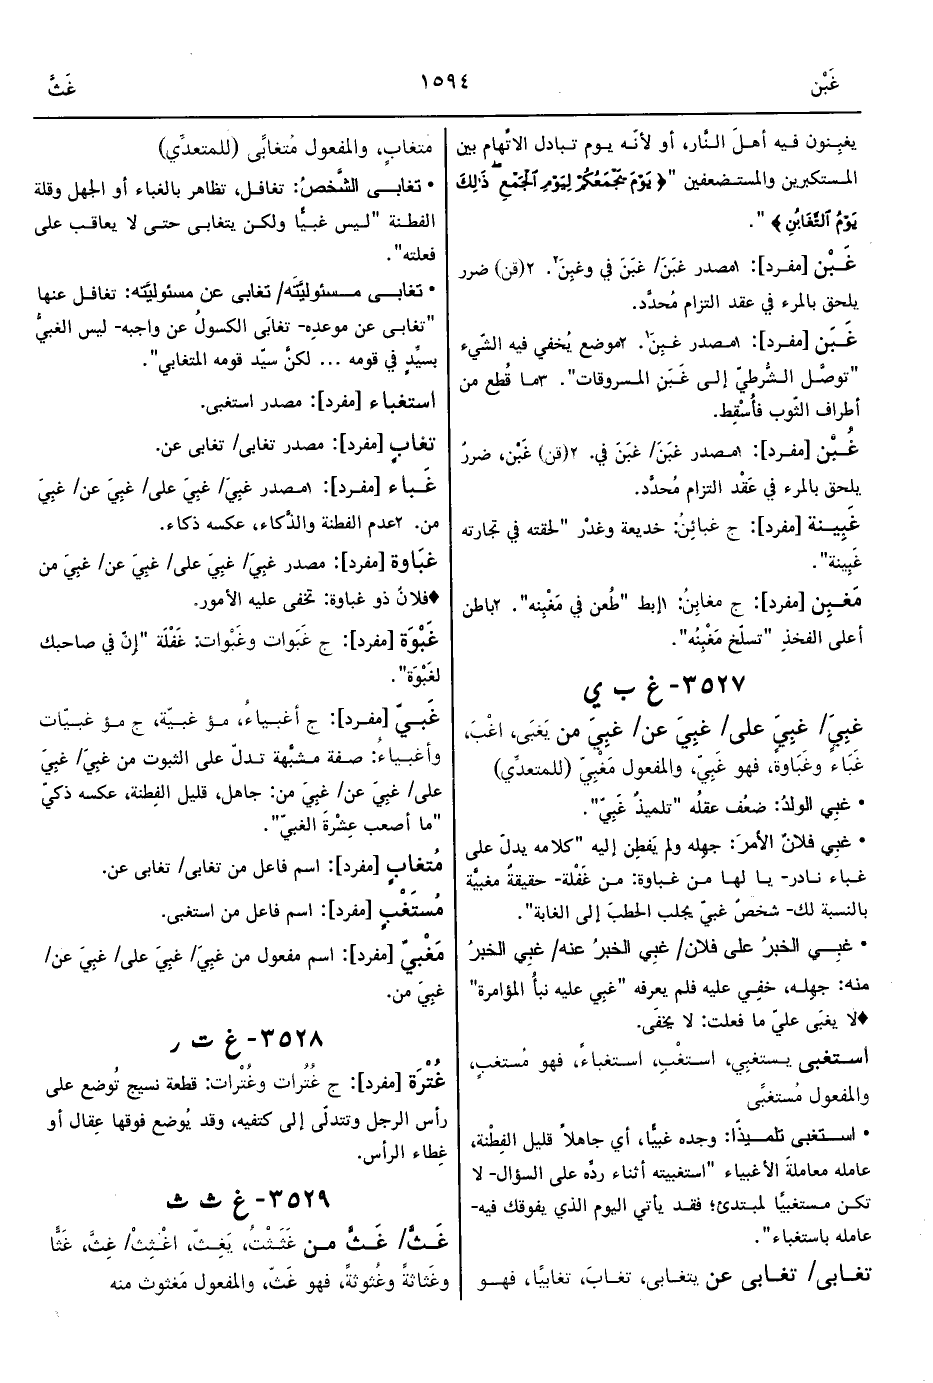 غَبْن
١٥٩٤
غَثَّ
يغبِنون فيه أهلَ النَّار، أو لأنّه يوم تبادل الاتّهام بين
المستكبرين والمستضعفين "﴿يَوْمَ يَجْمَعُكُمْ لِيَوْمِ الْجَمْعِ ذَٰلِكَ
يَوْمُ التَّغَابُنِ﴾".
غَبْن [مفرد]: ١مصدر غبَنَ/ غبَنَ في وغبِنَ٢. ٢(قن) ضرر
يلحق بالمرء في عقد التزام مُحدَّد.
غَبَن [مفرد]: ١مصدر غبِنَ١. ٢موضع يُخفي فيه الشّيء
"توصَّل الشُّرطيّ إلى غَبَنِ المسروقات". ٣ما قُطع من
أطراف الثَّوب فأُسْقِط.
غُبْن [مفرد]: ١مصدر غبَنَ/ غبَنَ في. ٢(قن) غَبْن، ضررٌ
يلحق بالمرء في عَقْد التزام مُحدَّد.
غَبِينة [مفرد]: ج غبائِنُ: خديعة وغدْر "لحقته في تجارته
غَبِينة".
مَغبِن [مفرد]: ج مغابِنُ: ١إبط "طُعن في مَغْبِنه". ٢باطن
أعلى الفخذِ "تسلّخ مَغْبِنُه".
٣٥٢٧- غ ب ي
غبِيَ/ غبِيَ على/ غبِيَ عن/ غبِيَ من يَغبَى، اغْبَ،
غَبَاءً وغَبَاوةً، فهو غَبِيّ، والمفعول مَغْبِيّ (للمتعدِّي)
• غبِي الولدُ: ضعُف عقلُه "تلميذٌ غَبِيّ".
• غبِي فلانٌ الأمرَ: جهله ولم يَفطِن إليه "كلامه يدلّ على
غباء نادر- يا لها من غباوة: من غَفْلة- حقيقةٌ مغبيَّة
بالنسبة لك- شخصٌ غبيّ يجلب الحطبَ إلى الغابة".
• غبِي الخبرُ على فلان/ غبِي الخبرُ عنه/ غبِي الخبرُ
منه: جهله، خفِي عليه فلم يعرفه "غبِي عليه نبأُ المؤامرة"
♦لا يغبَى عليّ ما فعلت: لا يخفَى.
استغبى يستغبِي، استغْبِ، استغباءً، فهو مُستغبٍ،
والمفعول مُستغبًى
• استغبى تلميذًا: وجده غبيًّا، أي جاهلاً قليل الفِطْنة،
عامله معاملةَ الأغبياء "استغبيته أثناء ردِّه على السؤال- لا
تكن مستغبيًا لمبتدئ؛ فقد يأتي اليوم الذي يفوقك فيه-
عامله باستغباء".
تغابى/ تغابى عن يتغابى، تغابَ، تغابيًا، فهو
متغابٍ، والمفعول مُتغابًى (للمتعدِّي)
• تغابى الشَّخصُ: تغافل، تظاهر بالغباء أو الجهل وقلة
الفطنة "ليس غبيًّا ولكن يتغابى حتى لا يعاقب على
فعلته".
• تغابى مسئوليَّته/ تغابى عن مسئوليَّته: تغافل عنها
"تغابى عن موعده- تغابَى الكسولُ عن واجبه- ليس الغبيُّ
بسيِّدٍ في قومه ... لكنَّ سيِّد قومه المتغابي".
استغباء [مفرد]: مصدر استغبى.
تغابٍ [مفرد]: مصدر تغابى/ تغابى عن.
غَباء [مفرد]: ١مصدر غبِيَ/ غبِيَ على/ غبِيَ عن/ غبِيَ
من. ٢عدم الفطنة والذَّكاء، عكسه ذكاء.
غبَاوة [مفرد]: مصدر غبِيَ/ غبِيَ على/ غبِيَ عن/ غبِيَ من
♦فلانٌ ذو غباوة: تخفى عليه الأمور.
غَبْوَة [مفرد]: ج غَبَوات وغَبْوات: غَفْلَة "إنّ في صاحبك
لغَبْوَة".
غَبيّ [مفرد]: ج أغبياءُ، مؤ غبيّة، ج مؤ غبيّات
وأغبياءُ: صفة مشبَّهة تدلّ على الثبوت من غبِيَ/ غبِيَ
على/ غبِيَ عن/ غبِيَ من: جاهل، قليل الفِطنة، عكسه ذكيّ
"ما أصعب عِشْرةَ الغبيّ".
مُتغابٍ [مفرد]: اسم فاعل من تغابى/ تغابى عن.
مُستَغْبٍ [مفرد]: اسم فاعل من استغبى.
مَغْبيّ [مفرد]: اسم مفعول من غبِيَ/ غبِيَ على/ غبِيَ عن/
غبِيَ من.
٣٥٢٨- غ ت ر
غُتْرَة [مفرد]: ج غُتُرات وغُتْرات: قطعة نسيج تُوضع على
رأس الرجل وتتدلّى إلى كتفيه، وقد يُوضع فوقها عِقال أو
غِطاء الرأس.
٣٥٢٩- غ ث ث
غَثَّ/ غَثَّ من غَثَثْتُ، يَغِثّ، اغْثِثْ/ غِثَّ، غَثًّا
وغَثاثةً وغُثوثةً، فهو غَثّ، والمفعول مَغثوث منه